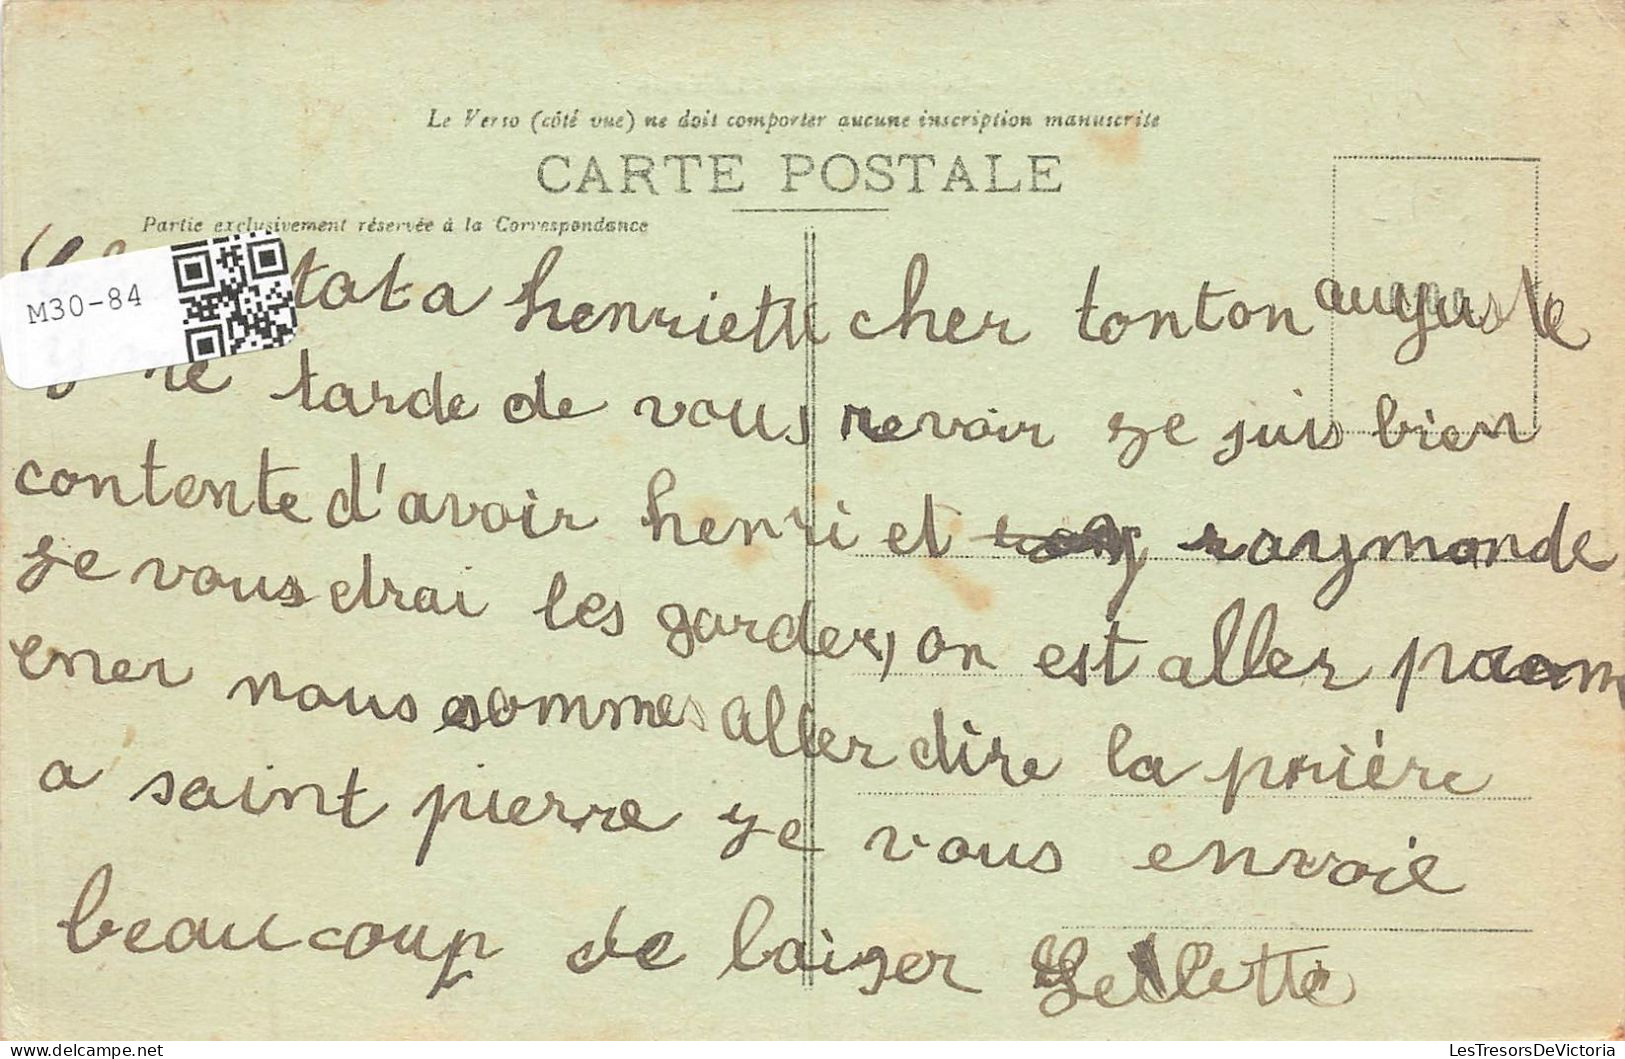 Le Verso (côté vue) ne doit comporter aucune inscription manuscrite
CARTE POSTALE
Partie exclusivement réservée à la Correspondance
M30-84
tata henriette cher tonton auguste
ne tarde de vous revoir ge suis bien
contente d'avoir henri et raymonde
ge vousdrai les garder, on est aller prom
ener nous sommes aller dire la prière
a saint pierre ge vous envoie
beaucoup de baiser
LesTresorsDeVictoria